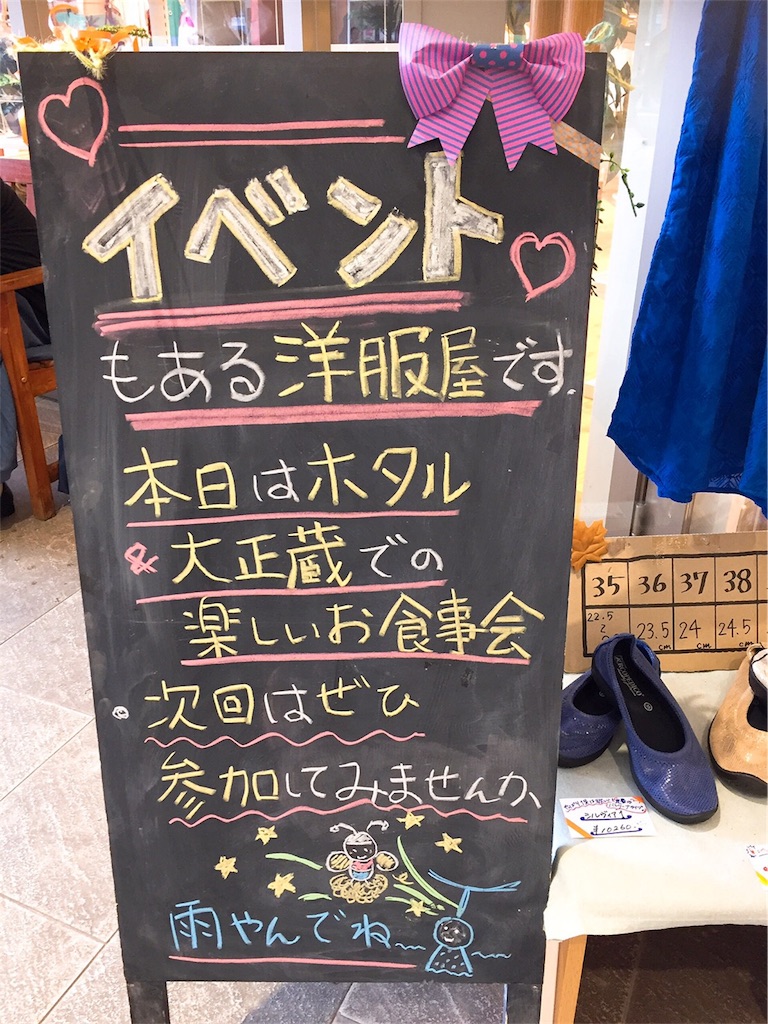 イベント
もある洋服屋です.
本日はホタル
& 大正蔵での
楽しいお食事会
次回はぜひ
参加してみませんか、
雨やんでね〜〜
35 36 37 38
22.5 23.5cm 24cm 24.5cm
¥10260.-